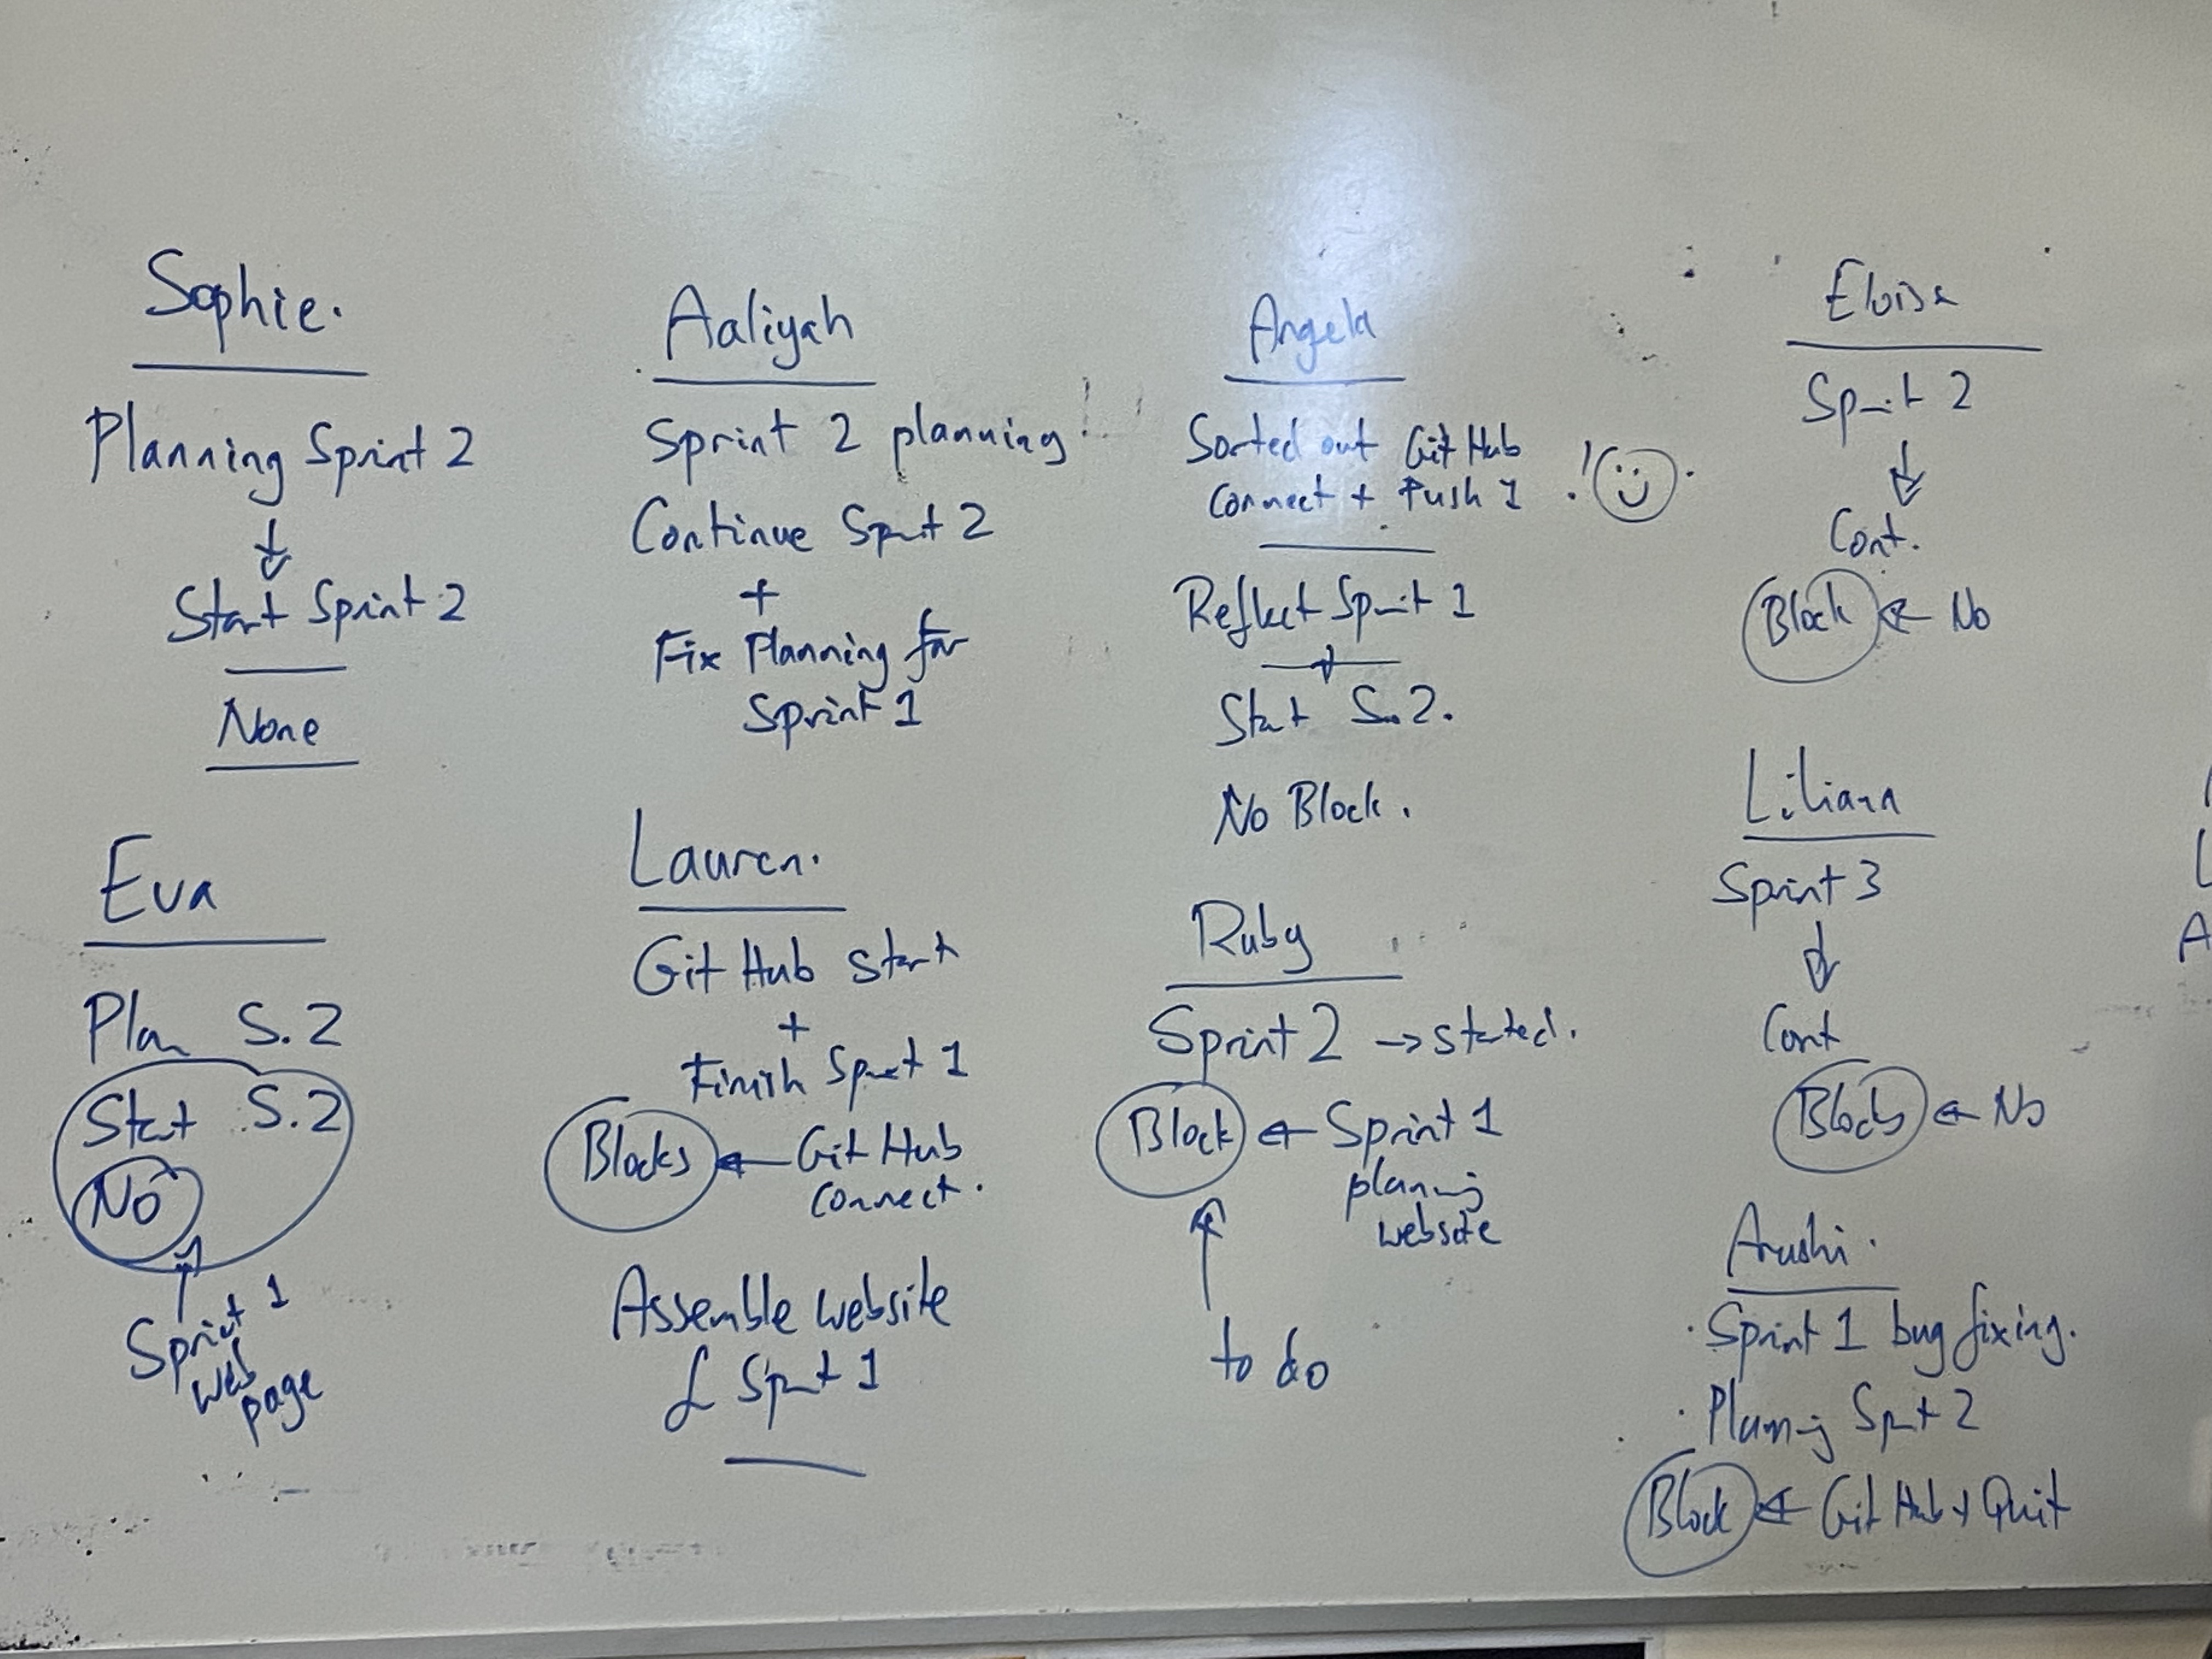 Sophie.
Planning Sprint 2
Start Sprint 2
None
Eva
Plan S.2
Start S.2
No
Sprint 1
web
page
Aaliyah
Sprint 2 planning
Continue Sprint 2
+
Fix Planning for
Sprint 1
Lauren.
GitHub start
+
Finish Sprint 1
Blocks ← GitHub
connect.
Assemble website
Sprint 1
Angela
Sorted out GitHub
connect + Push 1 !
Reflect Sprint 1
Start S.2.
No Block.
Ruby
Sprint 2 → started.
Block ← Sprint 1
planning
website
to do
Eloise
Sprint 2
Cont.
Block ← No
Liliana
Sprint 3
Cont
Blocks ← No
Arushi.
· Sprint 1 bug fixing.
· Planning Sprint 2
Block ← GitHub + Quit